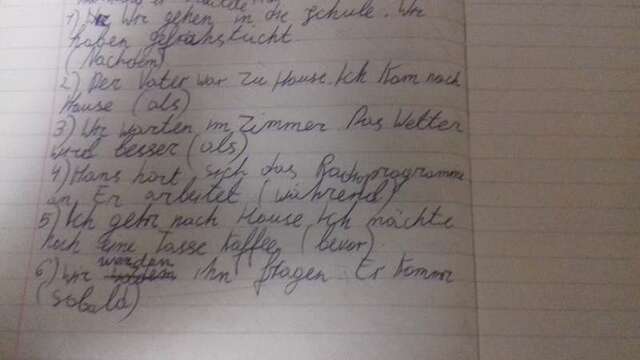 1) Wir gehen in die Schule. Wir
haben gefrühstückt
(Nachdem)
2) Der Vater war zu Hause. Ich kam nach
Hause (als)
3) Wir wurden im Zimmer. Das Wetter
wird besser (als)
4) Hans hört sich das Radioprogramm
an. Er arbeitet (während)
5) Ich gehe nach Hause. Ich möchte
eine Tasse Kaffee (bevor)
6) Wir werden ihn fragen. Er kommt
(sobald)